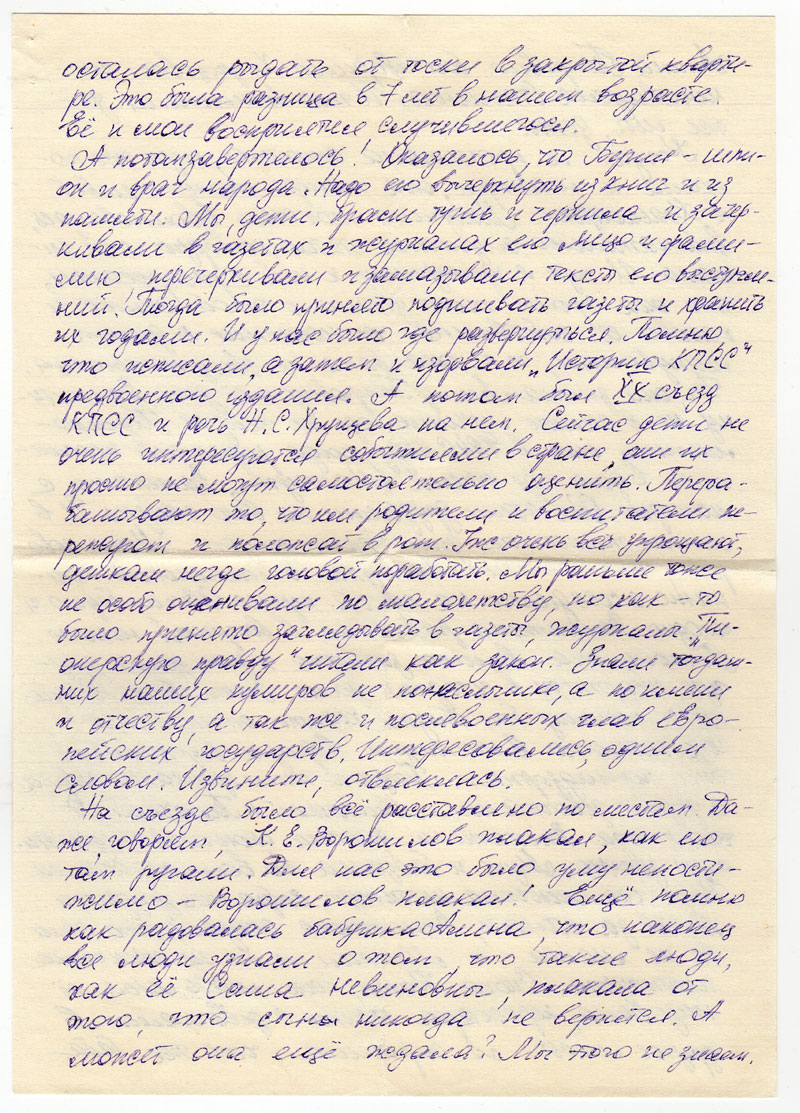 осталась рыдать от тоски в закрытой кварти-
ре. Это была разница в 7 лет в нашем возрасте.
Её и мои восприятия случившегося.
А потом завертелось! Оказалось, что Берия – шпи-
он и враг народа. Надо его вычеркнуть из книг и из
памяти. Мы, дети, брали тушь и чернила и зачер-
кивали в газетах и журналах его лицо и фами-
лию, перечеркивали и замазывали тексты его выступле-
ний. Тогда было принято подшивать газеты и хранить
их годами. И у нас было где развернуться. Помню,
что исписали, а затем и изорвали „Историю КПСС"
предвоенного издания. А потом был XX съезд
КПСС и речь Н.С. Хрущева на нем. Сейчас дети не
очень интересуются событиями в стране, они их
просто не могут самостоятельно оценить. Перера-
батывают то, что им родители и воспитатели пе-
режуют и положат в рот. Уж очень всё упрощают,
деткам негде головой поработать. Мы раньше тоже
не особо оценивали по малолетству, но как-то
было принято заглядывать в газеты, журналы. „Пи-
онерскую правду" читали как закон. Знали тогдаш-
них наших кумиров не понаслышке, а по имени
и отчеству, а так же и послевоенных глав евро-
пейских государств. Интересовались, одним
словом. Извините, отвлеклась.
На съезде было всё расставлено по местам. Да-
же, говорят, К.Е. Ворошилов плакал, как его
там ругали. Для нас это было уму непости-
жимо – Ворошилов плакал! Ещё помню
как радовалась бабушка Алина, что наконец
все люди узнали о том, что такие люди,
как её Саша невиновны, плакала от
того, что сын никогда не вернется. А
может она ещё ждала? Мы этого не знаем.